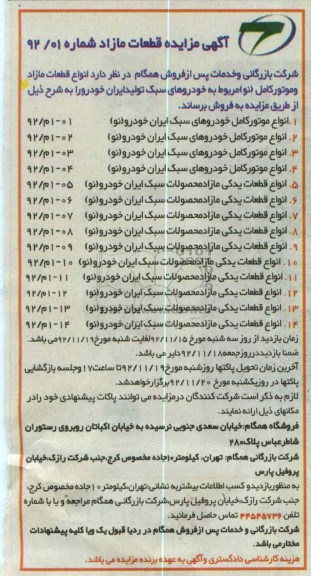 آگهی مزایده قطعات مازاد شماره ۰۱/ ۹۲
شرکت بازرگانی وخدمات پس ازفروش همگام در نظر دارد انواع قطعات مازاد
وموتورکامل (نو)مربوط به خودروهای سبک تولیدایران خودرورا به شرح ذیل
از طریق مزایده به فروش برساند.
۱ .انواع موتورکامل خودروهای سبک ایران خودرو(نو) ۰۱-م۱/۹۲
۲ .انواع موتورکامل خودروهای سبک ایران خودرو(نو) ۰۲-م۱/۹۲
۳ .انواع موتورکامل خودروهای سبک ایران خودرو(نو) ۰۳-م۱/۹۲
۴ .انواع موتورکامل خودروهای سبک ایران خودرو(نو) ۰۴-م۱/۹۲
۵ .انواع قطعات یدکی مازادمحصولات سبک ایران خودرو(نو) ۰۵-م۱/۹۲
۶ .انواع قطعات یدکی مازادمحصولات سبک ایران خودرو(نو) ۰۶-م۱/۹۲
۷ .انواع قطعات یدکی مازادمحصولات سبک ایران خودرو(نو) ۰۷-م۱/۹۲
۸ .انواع قطعات یدکی مازادمحصولات سبک ایران خودرو(نو) ۰۸-م۱/۹۲
۹ .انواع قطعات یدکی مازادمحصولات سبک ایران خودرو(نو) ۰۹-م۱/۹۲
۱۰ . انواع قطعات یدکی مازادمحصولات سبک ایران خودرو(نو) ۱۰-م۱/۹۲
۱۱ . انواع قطعات یدکی مازادمحصولات سبک ایران خودرو(نو) ۱۱-م۱/۹۲
۱۲ . انواع قطعات یدکی مازادمحصولات سبک ایران خودرو(نو) ۱۲-م۱/۹۲
۱۳ . انواع قطعات یدکی مازادمحصولات سبک ایران خودرو(نو) ۱۳-م۱/۹۲
۱۴ . انواع قطعات یدکی مازادمحصولات سبک ایران خودرو(نو) ۱۴-م۱/۹۲
زمان بازدید از روز سه شنبه مورخ ۹۲/۱۱/۱۵لغایت شنبه مورخ۹۲/۱۱/۱۹می باشد.
ضمنا بازدیددرروزجمعه۹۲/۱۱/۱۸دایر می باشد.
آخرین زمان تحویل پاکتها روزشنبه مورخ۹۲/۱۱/۱۹تا ساعت۱۷وجلسه بازگشایی
پاکتها در روزیکشنبه مورخ ۹۲/۱۱/۲۰برگزارخواهدشد.
لازم به ذکر است شرکت کنندگان درمزایده می توانند پاکات پیشنهادی خود رادر
مکانهای ذیل ارائه نمایند.
فروشگاه همگام:خیابان سعدی جنوبی نرسیده به خیابان اکباتان روبروی رستوران
شاطرعباس پلاک۲۸۰
شرکت بازرگانی همگام: تهران، کیلومتر۱۰جاده مخصوص کرج،جنب شرکت رازک،خیابان
پروفیل پارس
به منظوربازدیدو کسب اطلاعات بیشتربه نشانی:تهران،کیلومتر ۱۰جاده مخصوص کرج،
جنب شرکت رازک،خیابان پروفیل پارس،شرکت بازرگانی همگام مراجعه و یا با شماره
تلفن ۴۴۵۴۵۷۳۶ تماس حاصل فرمائید.
شرکت بازرگانی و خدمات پس ازفروش همگام در ردیا قبول یک ویا کلیه پیشنهادات
مختارمی باشد.
هزینه کارشناسی دادگستری وآگهی به عهده برنده مزایده می باشد.